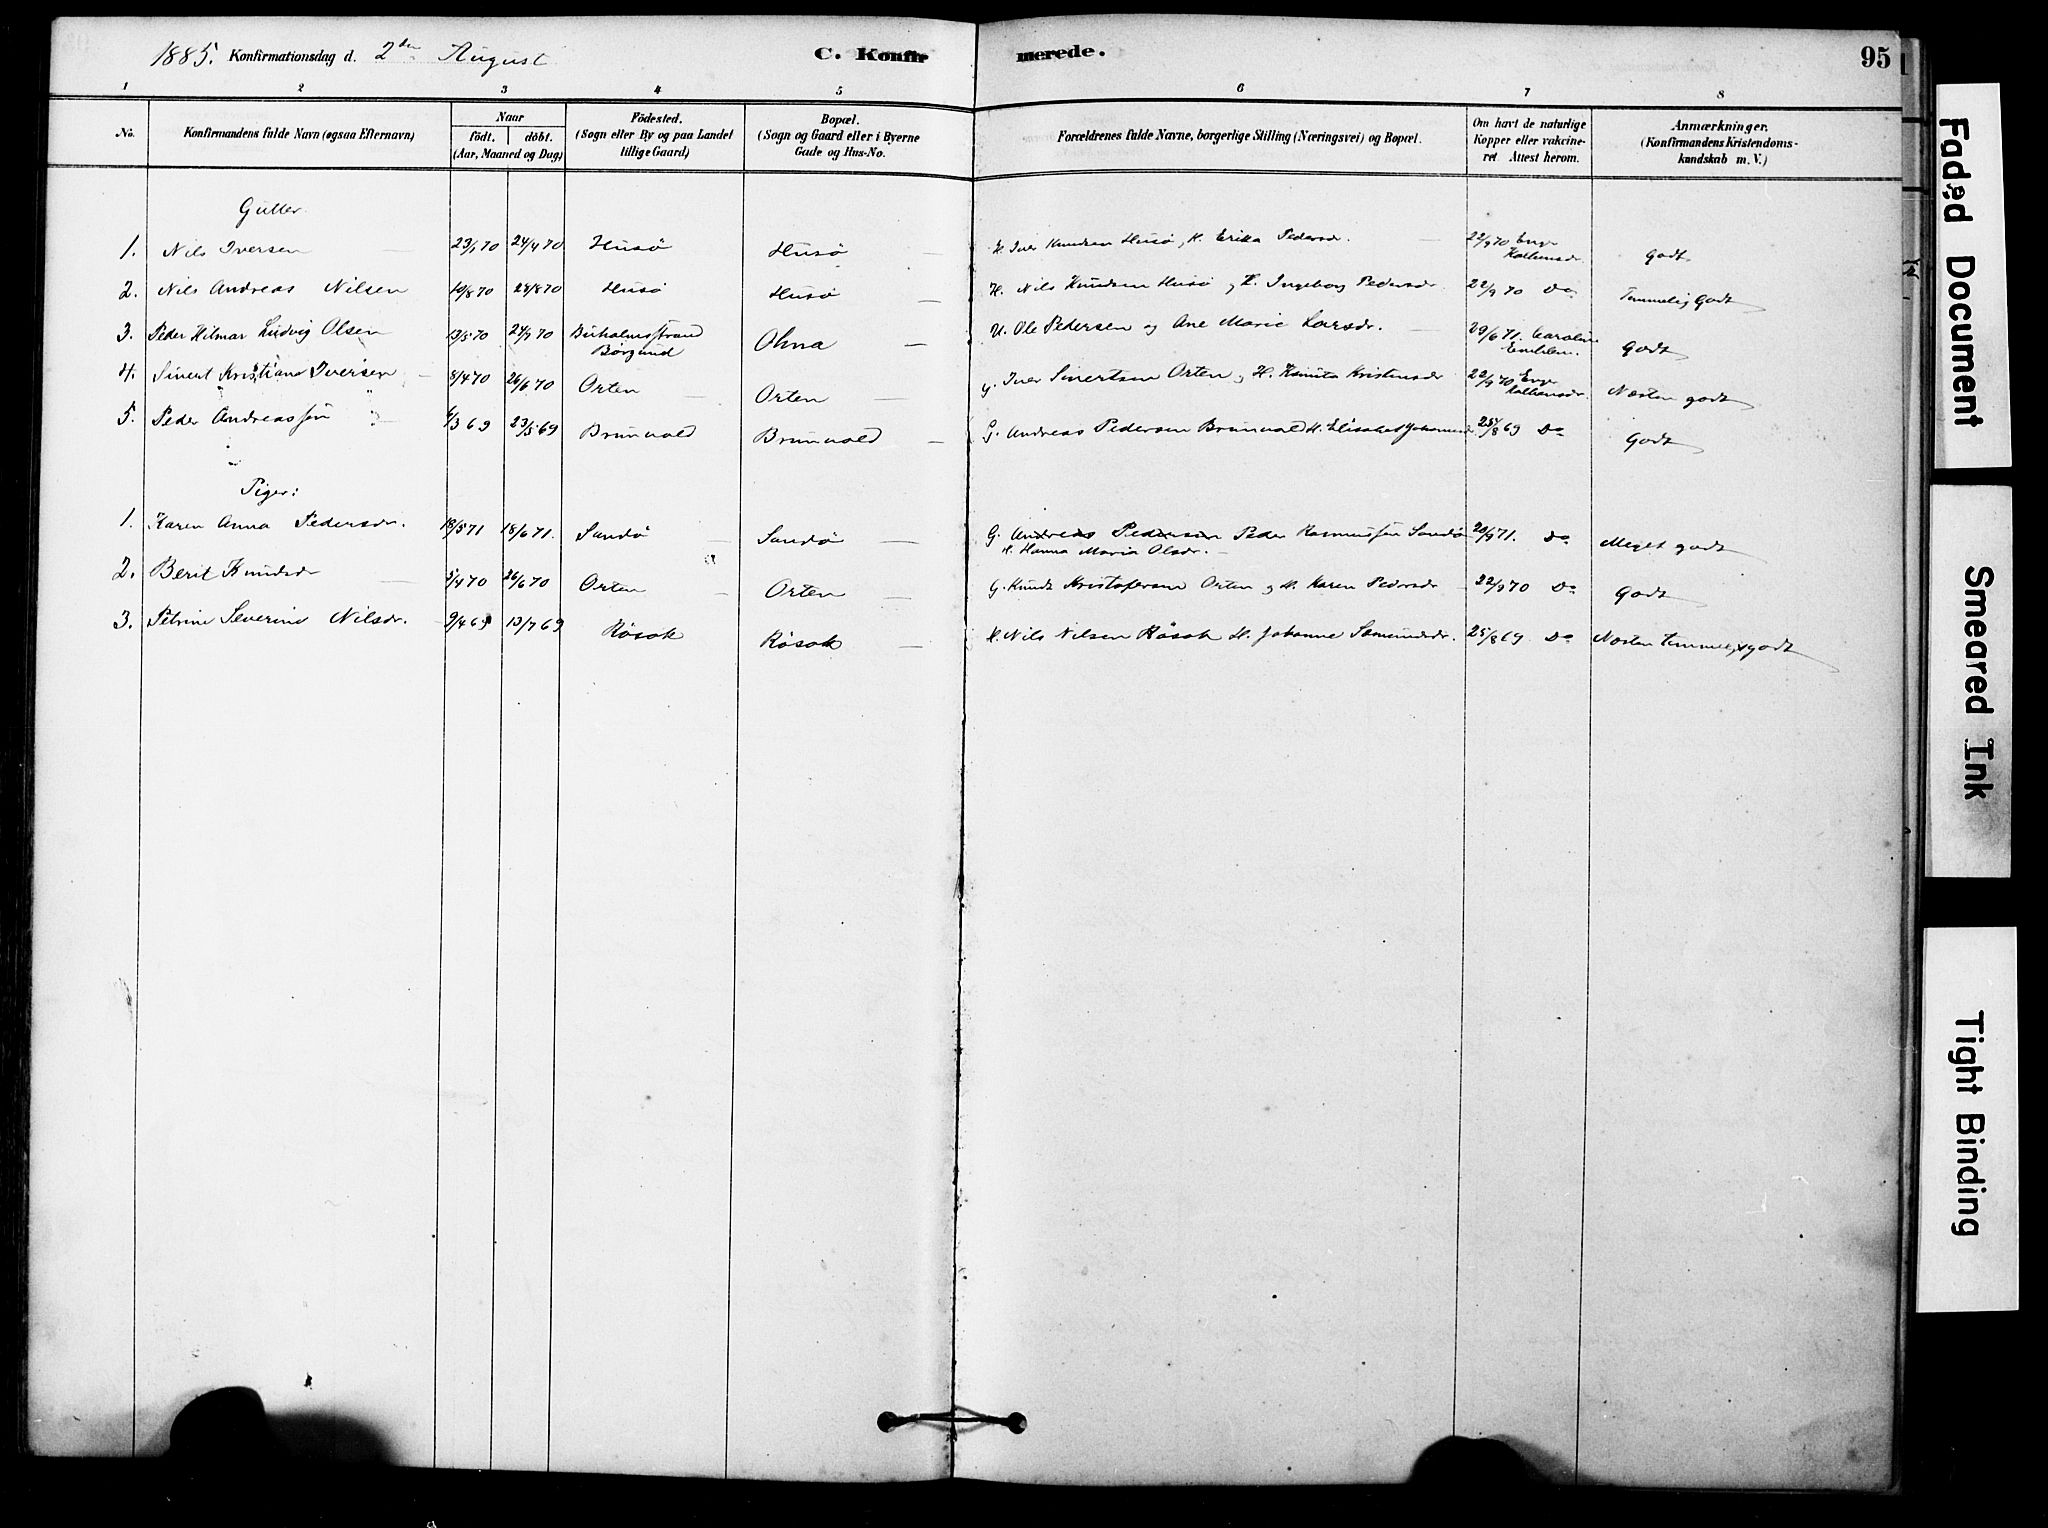 1885. Konfirmationsdag d. 2den August C. Konfirmerede. 95
1 2 3 4 5 6 7 8
No. Konfirmandens fulde Navn (ogsaa Efternavn) Naar födt. döbt. (Aar, Maaned og Dag) Födested. (Sogn eller By og paa Landet tillige Gaard) Bopæl. (Sogn og Gaard eller i Byerne Gade og Hus-No. Forældrenes fulde Navne, borgerlige Stilling (Næringsvei) og Bopæl. Om havt de naturlige Kopper eller vakcineret. Attest herom. Anmærkninger. (Konfirmandens Kristendomskundskab m. V.)
Gutter.
1. Nils Iversen 23/1 70 24/4 70 Husö Husö H. Iver Knudsen Husö, H. Erika Pedersdr. 22/9 70 Godt
2. Nils Andreas Nilsen 10/8 70 28/8 70 Husö Husö H. Nils Knudsen Husö og H. Ingeborg Pedersdr 22/9 70 Do Temmelig Godt
3. Peder Hilmar Ludvig Olsen 13/5 70 24/7 70 Börgund Ohna U. Ole Pedersen og Ane Marie Larsdr. 29/6 71. Caroline Emblem. Godt
4. Sivert Kristiana Iversen 8/4 70 26/6 70 Orten Orten G. Iver Sivertsen Orten og H. Kristensdr 22/9 70 Næsten godt
5. Peder Andreassen 4/3 69 23/5 69 Brunvold Brunvold G. Andreas Pedersen Brunvold H. Elisabet 25/8 69 Do Godt
Piger:
1. Karen Anna Pedersdr. 18/5 71 18/6 71. Sandö Sandö G. Andreas Pedersen Peder Rasmussen Sandö 20/9 71. Do Meget godt
H. Hanna Maria Olsdr.
2. Berit Knudsdr 5/4 70 26/6 70 Orten Orten G. Knud Kristofersen Orten og H. Karen Pedersdr 22/9 70 Do Godt
3. Petrine Severine Nilsdr. 9/4 69 13/7 69 Rösok Rösok H. Nils Nilsen Rösok H. Johanne 25/8 69 Do Næsten temmelig godt
Faded Document
Smeared Ink
Tight Binding